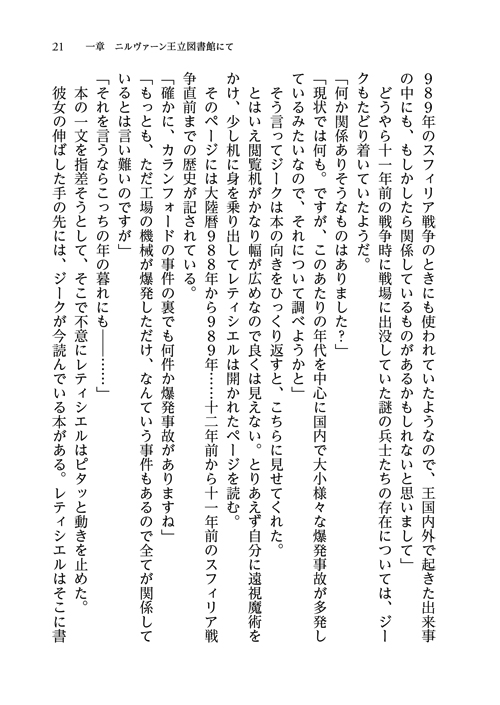 21　一章　ニルヴァーン王立図書館にて
989年のスフィリア戦争のときにも使われていたようなので、王国内外で起きた出来事
の中にも、もしかしたら関係しているものがあるかもしれないと思いまして」
　どうやら十一年前の戦争時に戦場に出没していた謎の兵士たちの存在については、ジー
クもたどり着いていたようだ。
「何か関係ありそうなものはありました？」
「現状では何も。ですが、このあたりの年代を中心に国内で大小様々な爆発事故が多発し
ているみたいなので、それについて調べようかと」
　そう言ってジークは本の向きをひっくり返すと、こちらに見せてくれた。
　とはいえ閲覧机がかなり幅が広めなので良くは見えない。とりあえず自分に遠視魔術を
かけ、少し机に身を乗り出してレティシエルは開かれたページを読む。
　そのページには大陸暦988年から989年……十二年前から十一年前のスフィリア戦
争直前までの歴史が記されている。
「確かに、カランフォードの事件の裏でも何件か爆発事故がありますね」
「もっとも、ただ工場の機械が爆発しただけ、なんていう事件もあるので全てが関係して
いるとは言い難いのですが」
「それを言うならこっちの年の暮れにも――……」
　本の一文を指差そうとして、そこで不意にレティシエルはピタッと動きを止めた。
　彼女の伸ばした手の先には、ジークが今読んでいる本がある。レティシエルはそこに書